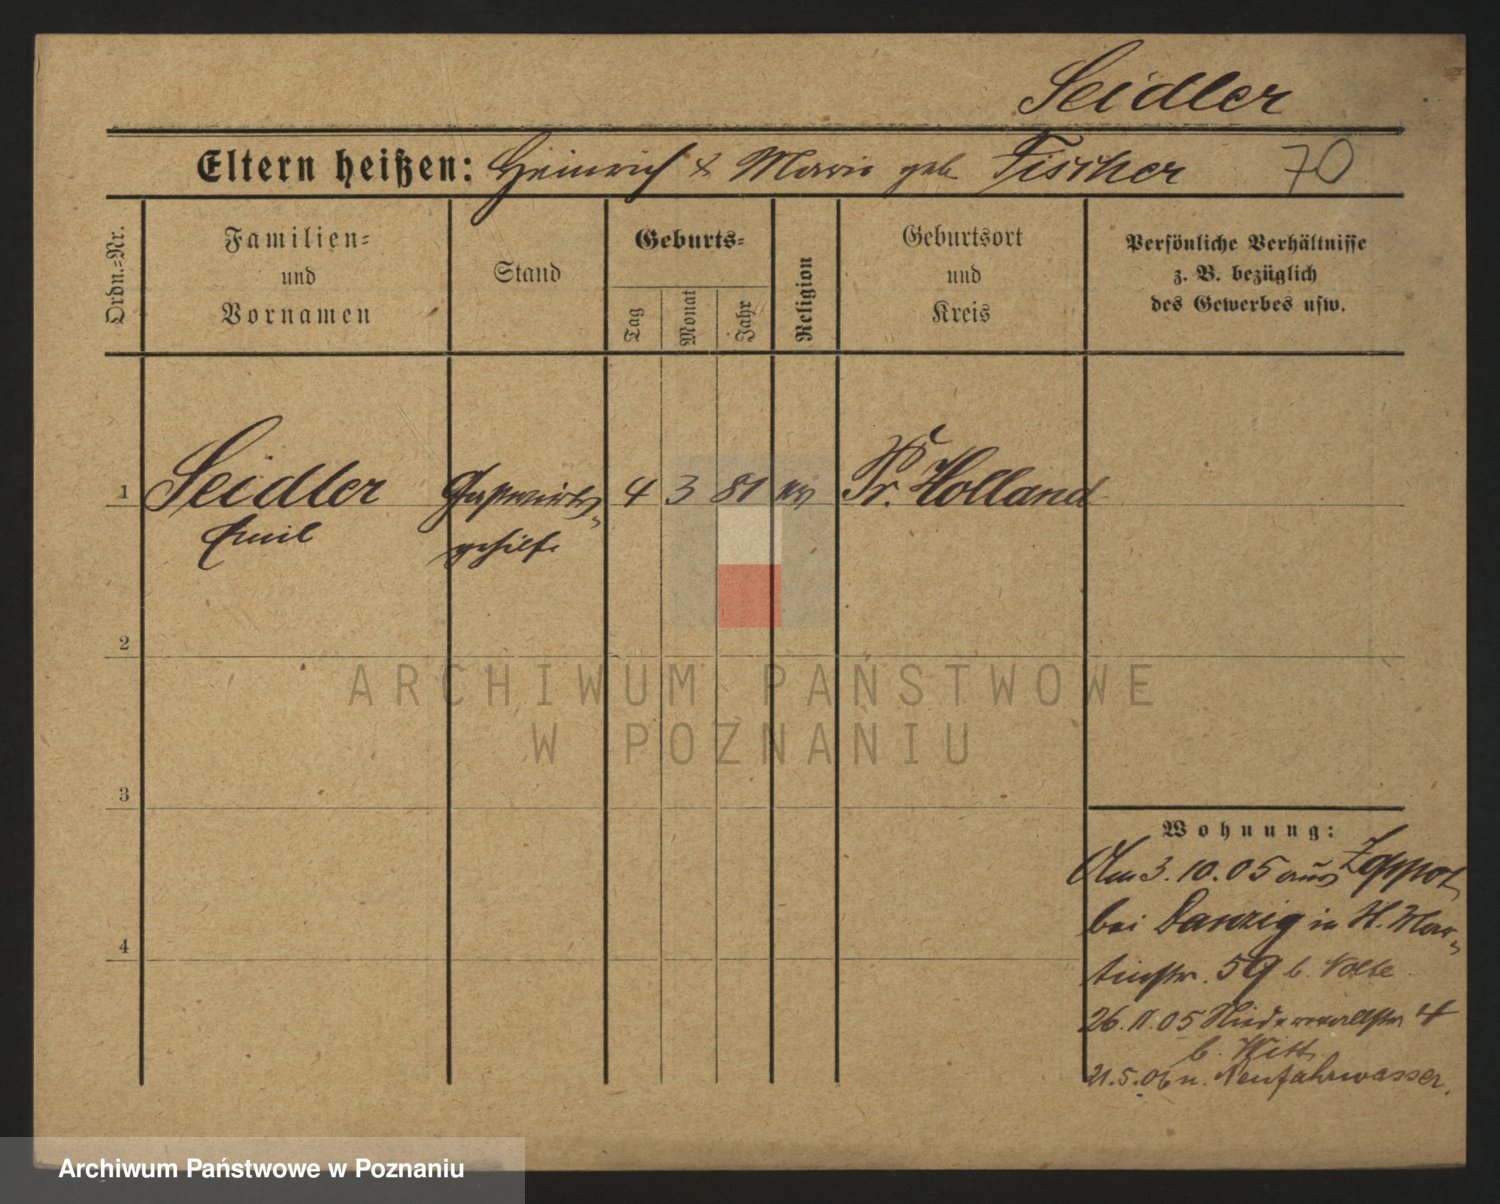 Seidler
Eltern heißen: Heinrich & Marie geb Fischer 70
Ordn.-Nr.
Familien-
und
Vornamen
Stand
Geburts-
Tag
Monat
Jahr
Religion
Geburtsort
und
Kreis
Persönliche Verhältnisse
z. B. bezüglich
des Gewerbes usw.
1 Seidler Gastwirts- 4 3 81 Pr. Holland
Emil gehilfe
2
3
4
Wohnung:
Am 3.10.05 aus Zoppot
bei Danzig in St. Mar-
tinstr. 59 b. Nolte
26.11.05 Niederwallstr 4
b. Witt
21.5.06 n. Neufahrwasser.
ARCHIWUM PAŃSTWOWE
W POZNANIU
Archiwum Państwowe w Poznaniu